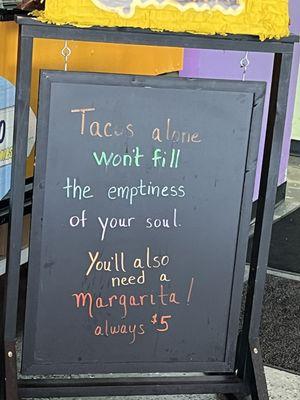 Tacos alone
won't fill
the emptiness
of your soul.
You'll also
need a
Margarita!
always $5